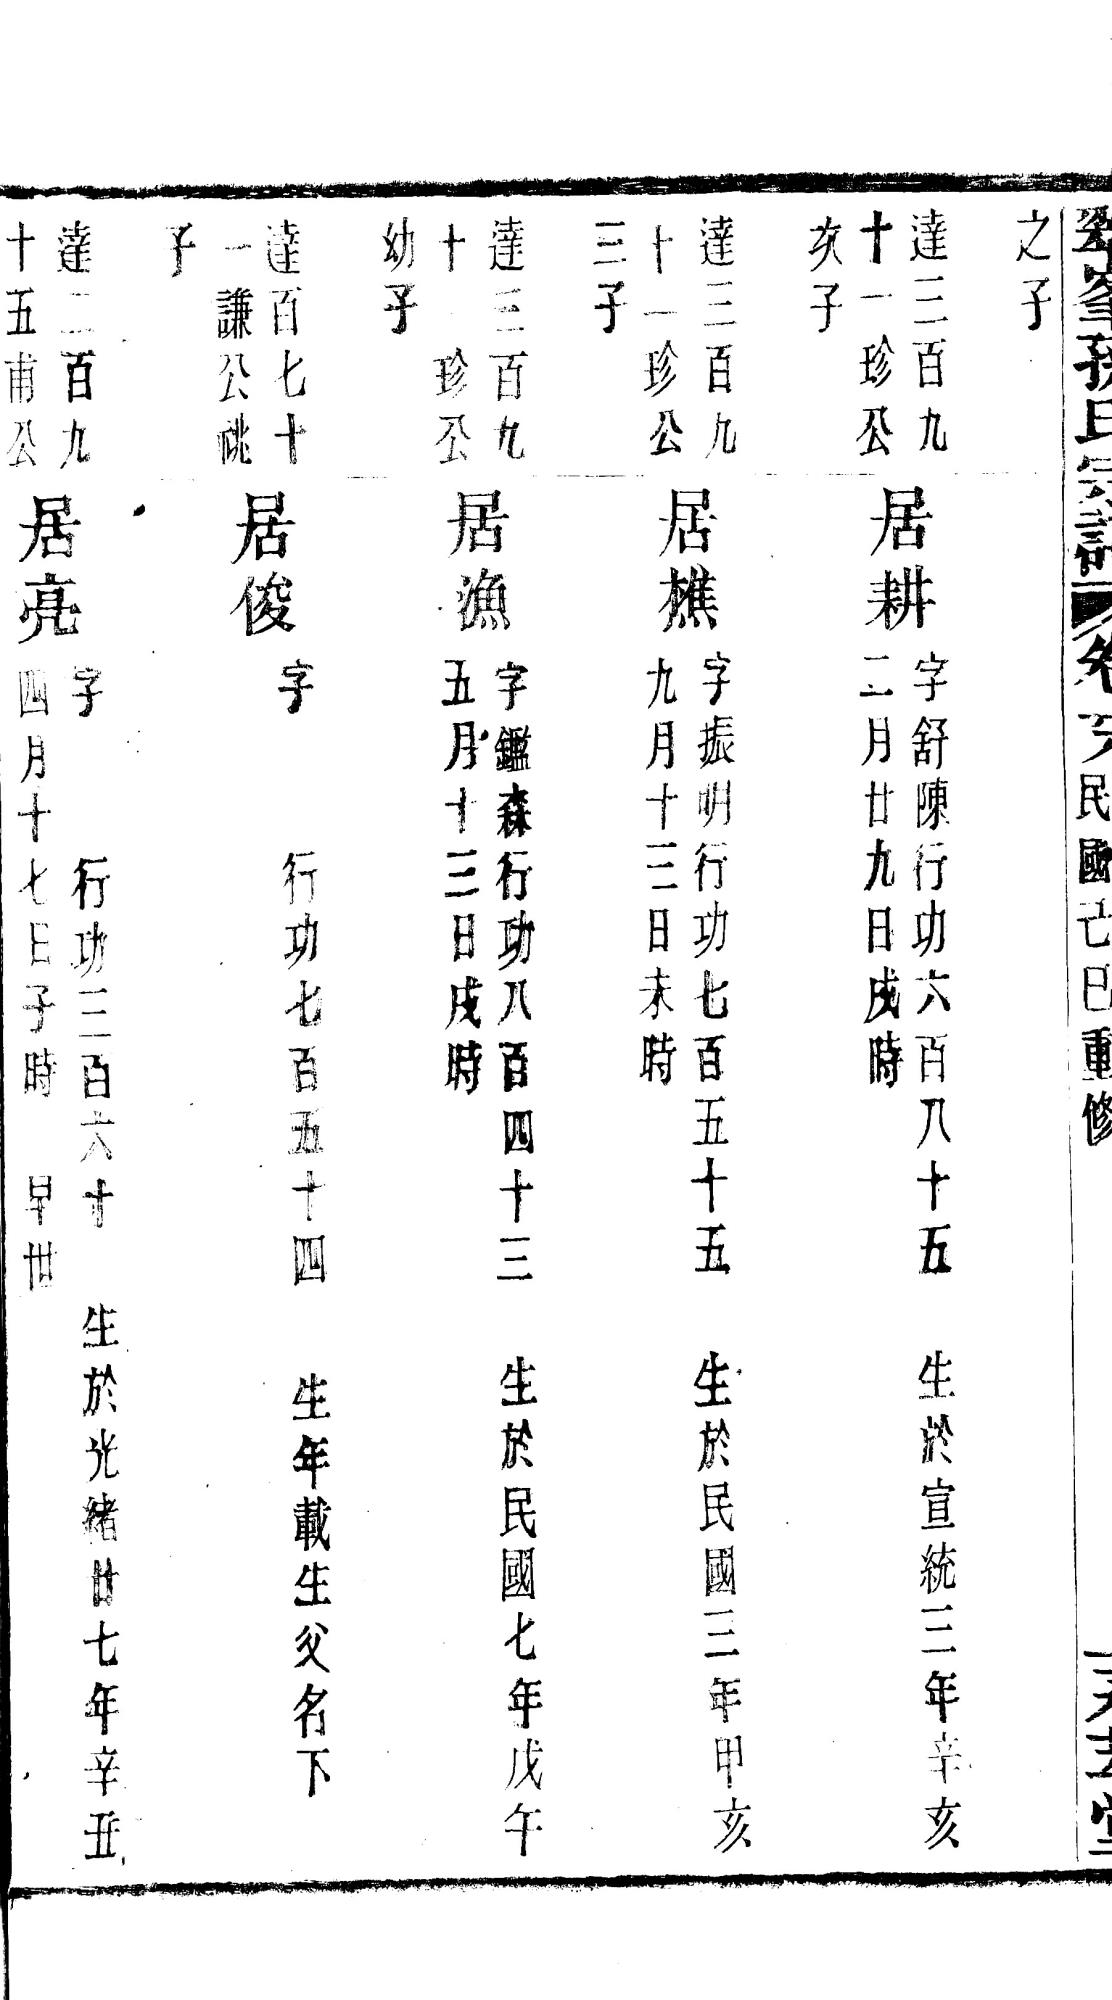 孫氏宗譜 卷 民國己巳重修
之子
達三百九
十一珍公
次子
居耕
字舒陳行功六百八十五 生於宣統三年辛亥
二月廿九日戌時
達三百九
十一珍公
三子
居樵
字振明行功七百五十五 生於民國三年甲亥
九月十三日未時
達三百九
十 珍公
幼子
居漁
字鑑森行功八百四十三 生於民國七年戊午
五月十三日戌時
達百七十
一謙公祧
子
居俊
字 行功七百五十四 生年載生父名下
達二百九
十五甫公
居亮
字 行功三百六十 生於光緒廿七年辛丑
四月十七日子時 早世